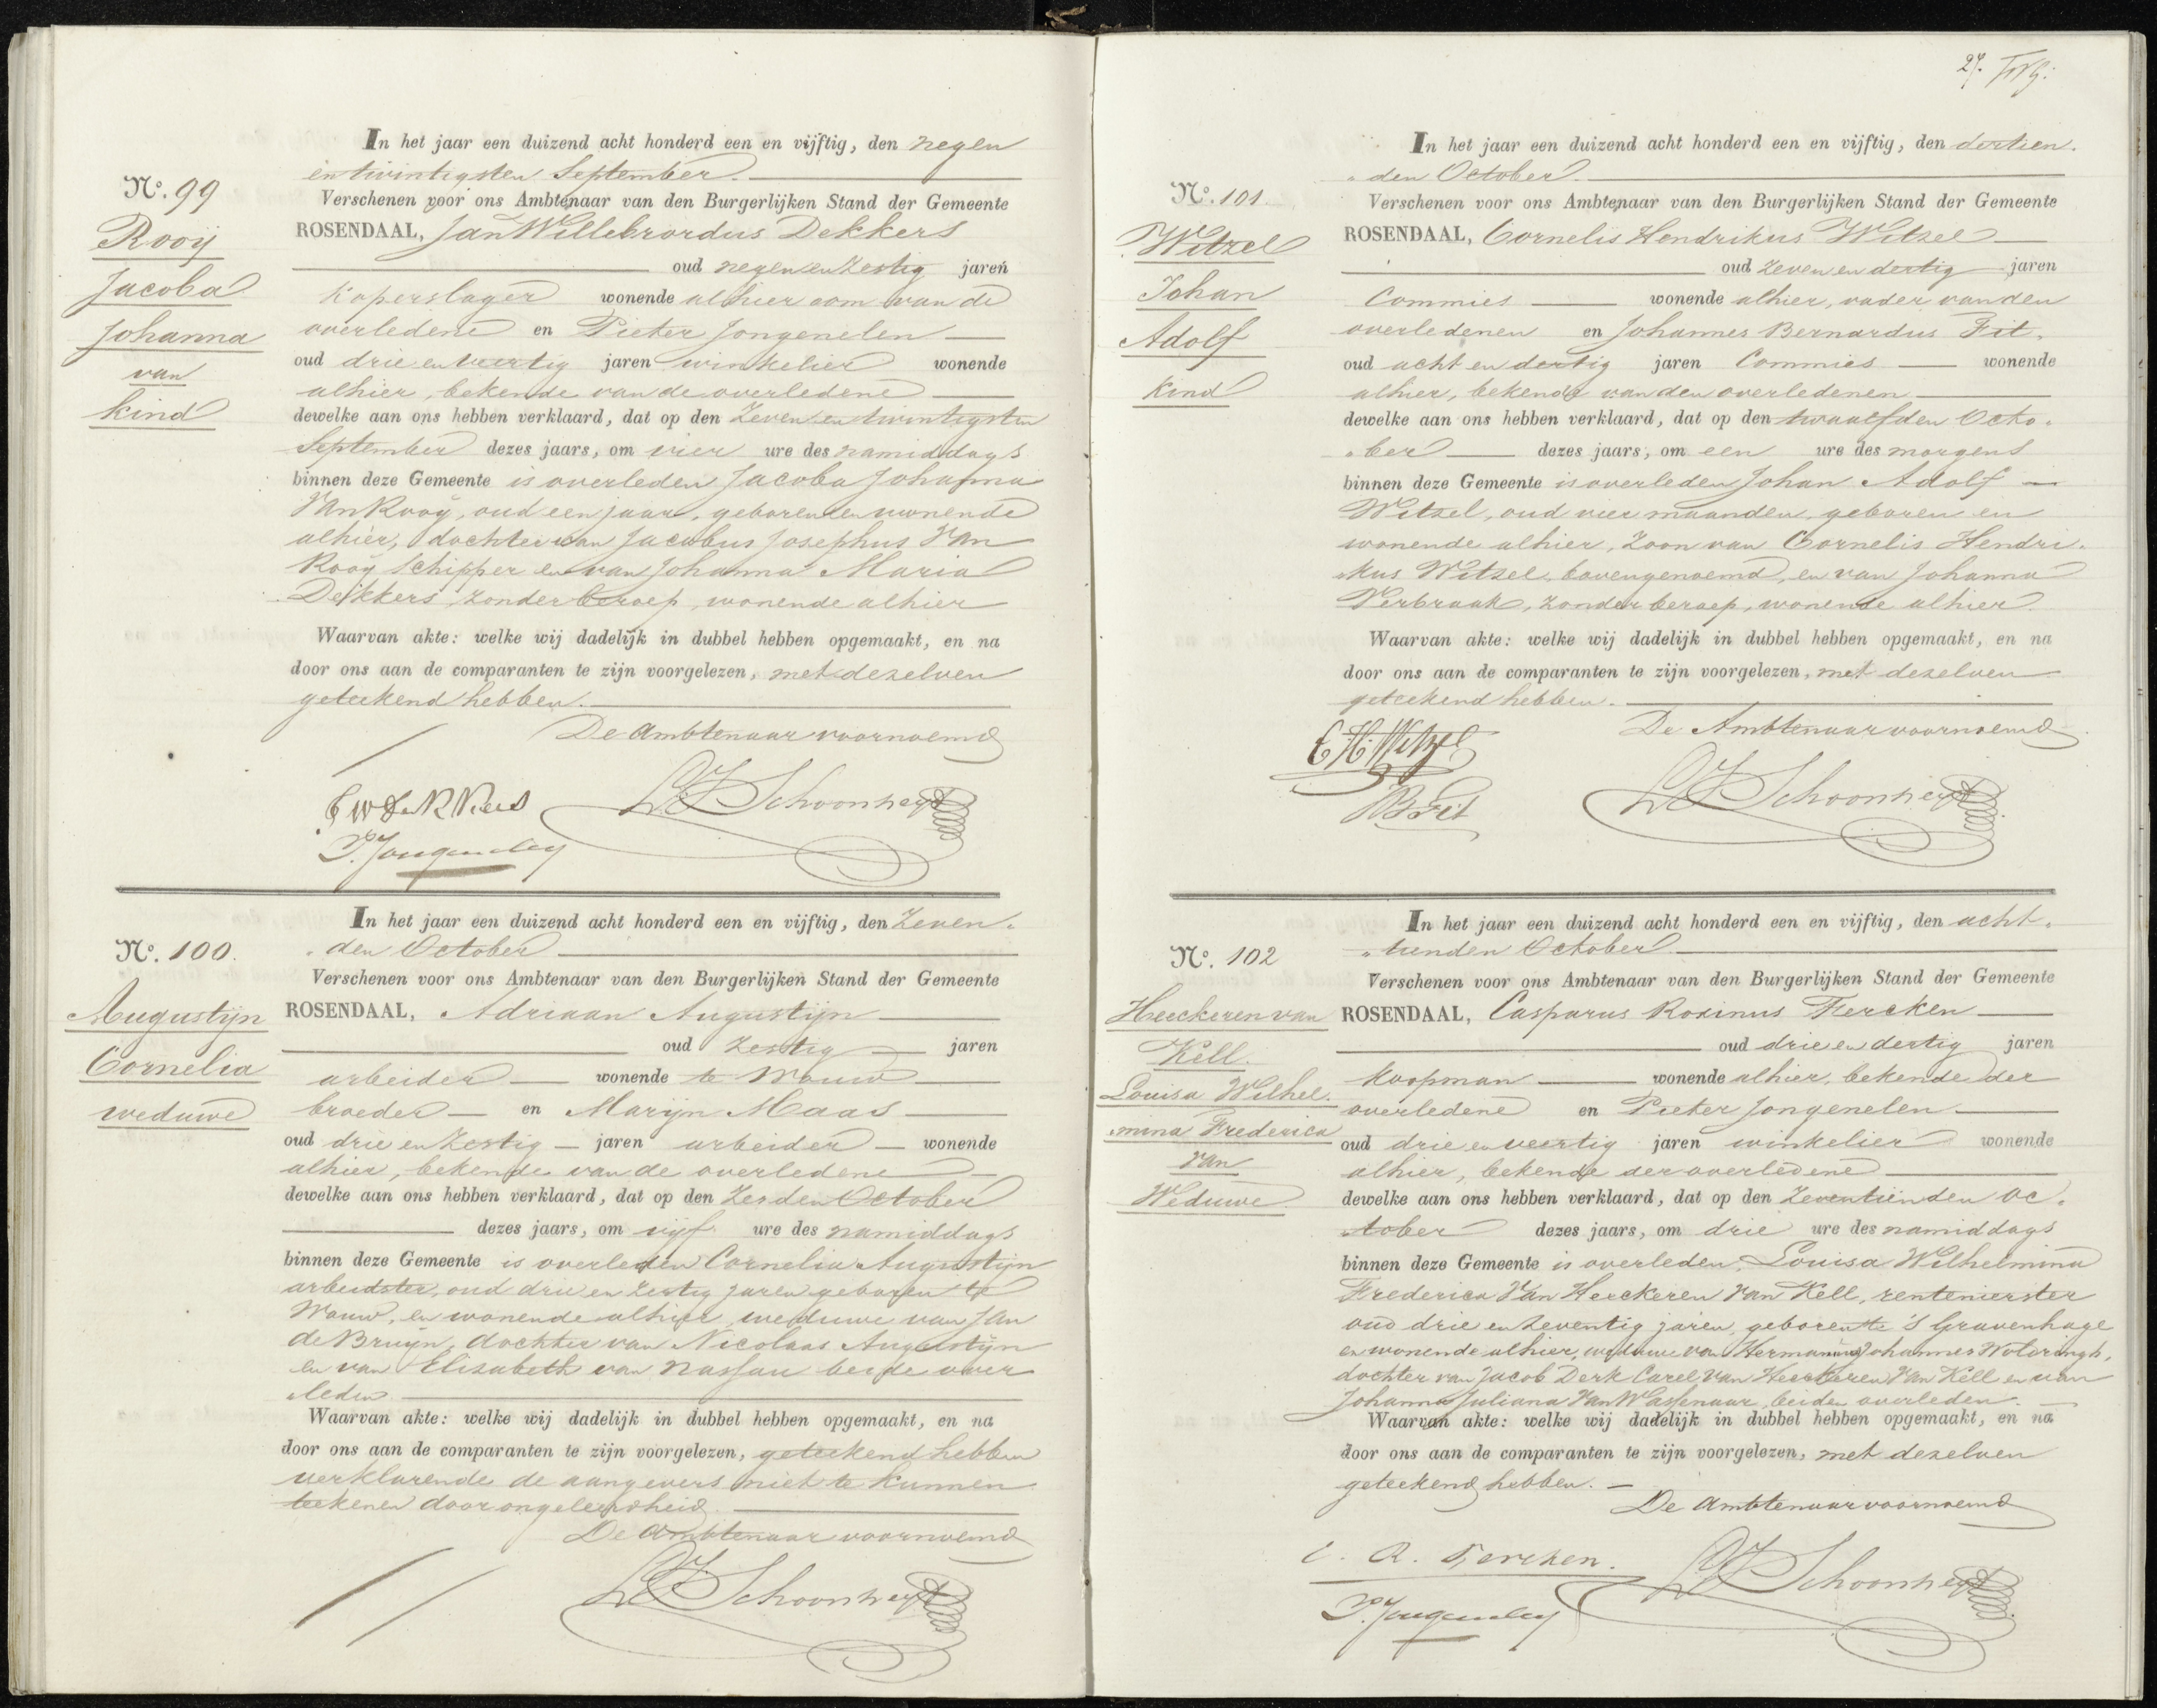 In het jaar een duizend acht honderd een en vijftig, den negen
en twintigsten September.
Nº. 99
Rooij
Jacoba
Johanna
van
kind
Verschenen voor ons Ambtenaar van den Burgerlijken Stand der Gemeente
ROSENDAAL, Jan Willebrordus Dekkers
oud negen en zestig jaren
koperslager wonende alhier oom van de
overledene en Pieter Jongenelen
oud drie en veertig jaren winkelier wonende
alhier, bekende van de overledene
dewelke aan ons hebben verklaard, dat op den zeven en twintigsten
September dezes jaars, om vier ure des namiddags
binnen deze Gemeente is overleden Jacoba Johanna
Van Rooij, oud een jaar, geboren en wonende
alhier, dochter van Jacobus Josephus Van
Rooij Schipper en van Johanna Maria
Dekkers, zonder beroep, wonende alhier
Waarvan akte: welke wij dadelijk in dubbel hebben opgemaakt, en na
door ons aan de comparanten te zijn voorgelezen, met dezelven
geteekend hebben.
De Ambtenaar voornoemd
J W Dekkers
Schoonheyt
P. Jongenelen
In het jaar een duizend acht honderd een en vijftig, den Zeven-
den October
Nº. 100.
Augustijn
Cornelia
weduwe
Verschenen voor ons Ambtenaar van den Burgerlijken Stand der Gemeente
ROSENDAAL, Adriaan Augustijn
oud zestig jaren
arbeider wonende te Wouw
broeder en Marijn Maas
oud drie en zestig jaren arbeider wonende
alhier, bekende van de overledene
dewelke aan ons hebben verklaard, dat op den zesden October
dezes jaars, om vijf ure des namiddags
binnen deze Gemeente is overleden Cornelia Augustijn
arbeidster, oud drie en zestig jaren geboren te
Wouw, en wonende alhier, weduwe van Jan
de Bruijn, dochter van Nicolaas Augustijn
en van Elizabeth van Nassau beide over
leden
Waarvan akte: welke wij dadelijk in dubbel hebben opgemaakt, en na
door ons aan de comparanten te zijn voorgelezen, geteekend hebben
verklarende de aangevers niet te kunnen
teekenen door ongeleerdheid.
De Ambtenaar voornoemd
Schoonheyt
27.
In het jaar een duizend acht honderd een en vijftig, den dertien-
den October.
Nº. 101.
Witzel
Johan
Adolf
kind
Verschenen voor ons Ambtenaar van den Burgerlijken Stand der Gemeente
ROSENDAAL, Cornelis Hendrikus Witzel
oud zeven en dertig jaren
Commies wonende alhier, vader van den
overledenen en Johannes Bernardus Fit.
oud acht en dertig jaren Commies wonende
alhier, bekende van den overledenen
dewelke aan ons hebben verklaard, dat op den twaalfden Octo-
ber dezes jaars, om een ure des morgens
binnen deze Gemeente is overleden Johan Adolf
Witzel, oud vier maanden, geboren en
wonende alhier, Zoon van Cornelis Hendri-
kus Witzel, bovengenoemd, en van Johanna
Verbraak, zonder beroep, wonende alhier.
Waarvan akte: welke wij dadelijk in dubbel hebben opgemaakt, en na
door ons aan de comparanten te zijn voorgelezen, met dezelven
geteekend hebben.
De Ambtenaar voornoemd
C H Witzel
Schoonheyt
In het jaar een duizend acht honderd een en vijftig, den acht-
tienden October
Nº. 102
Heeckeren van
Kell.
Louisa Wilhel-
mina Frederica
van
Weduwe
Verschenen voor ons Ambtenaar van den Burgerlijken Stand der Gemeente
ROSENDAAL, Casparus Rosinus Fercken
oud drie en dertig jaren
koopman wonende alhier, bekende der
overledene en Pieter Jongenelen
oud drie en veertig jaren winkelier wonende
alhier, bekende der overledene
dewelke aan ons hebben verklaard, dat op den zeventienden Oc-
tober dezes jaars, om drie ure des namiddags
binnen deze Gemeente is overleden, Louisa Wilhelmina
Frederica Van Heeckeren Van Kell, rentenierster
oud drie en zeventig jaren, geboren te 's Gravenhage
en wonende alhier, weduwe van Hermannus Johannes
dochter van Jacob Derk Carel Van Heeckeren Van Kell en van
Johanna Juliana Van Wassenaar, beiden overleden.
Waarvan akte: welke wij dadelijk in dubbel hebben opgemaakt, en na
door ons aan de comparanten te zijn voorgelezen, met dezelven
geteekend hebben.
De Ambtenaar voornoemd
C. R. Fercken.
Schoonheyt
P. Jongenelen